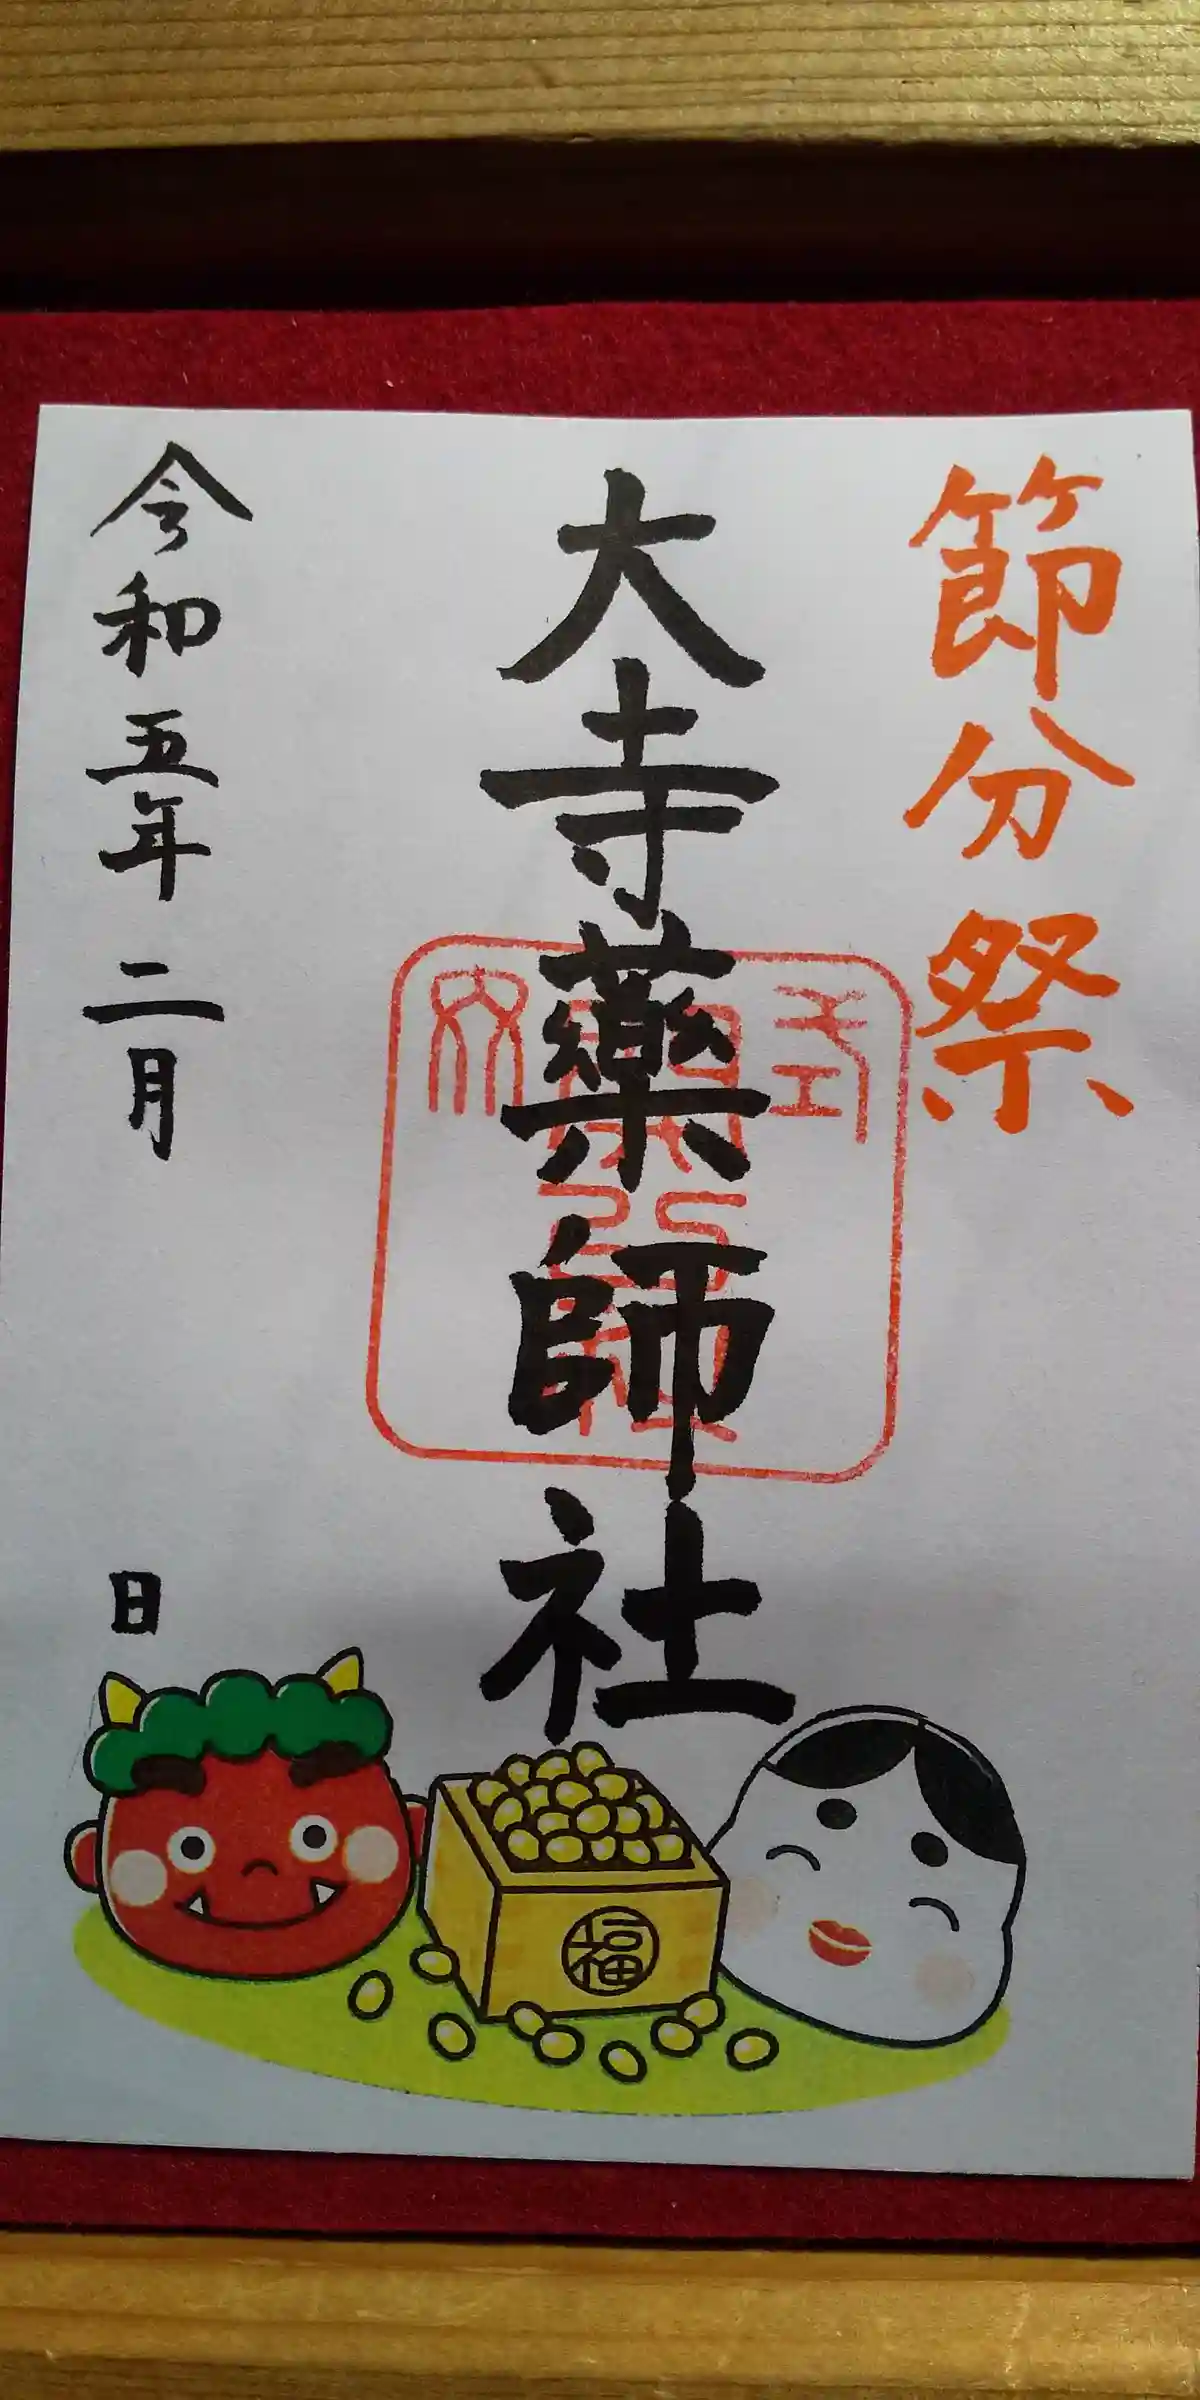 節分祭
大寺薬師社
令和五年二月
日
福